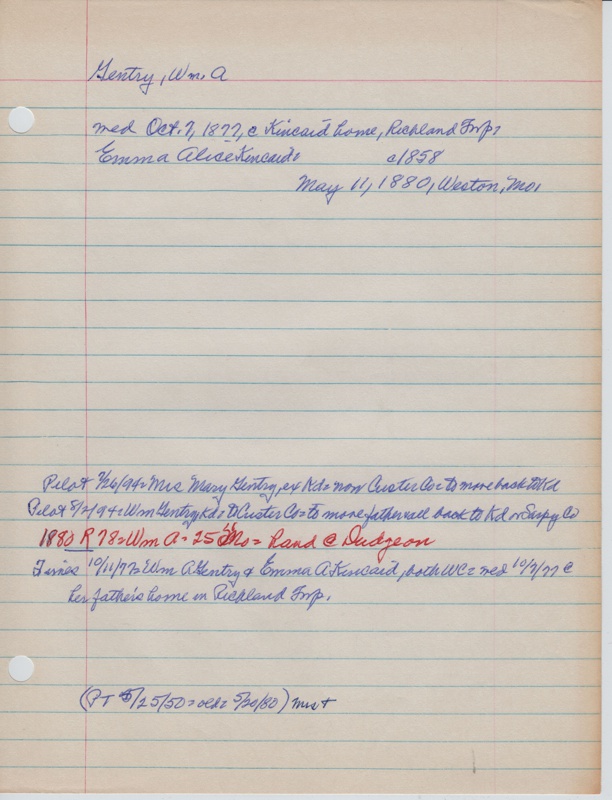 Gentry, Wm. A
med Oct. 7, 1877, c Kincaid home, Richland Twp=
Emma Alice Kincaid= c1858
May 11, 1880, Weston, Mo.
Pilot 7/26/94= Mrs Mary Gentry, ex Kd= now Custer Co= to move back to Kd
Pilot 8/2/94= Wm Gentry Kd= to Custer Co= to move father all back to Kd or Sarpy Co
1880 R 78= Wm A= 25 Mo= hand c Dudgeon
Times 10/11/77= Wm A Gentry & Emma A Kincaid, both WC= med 10/7/77 c
her father's home in Richland Twp.
(PT 5/25/50= old= 5/20/80) Mrs +